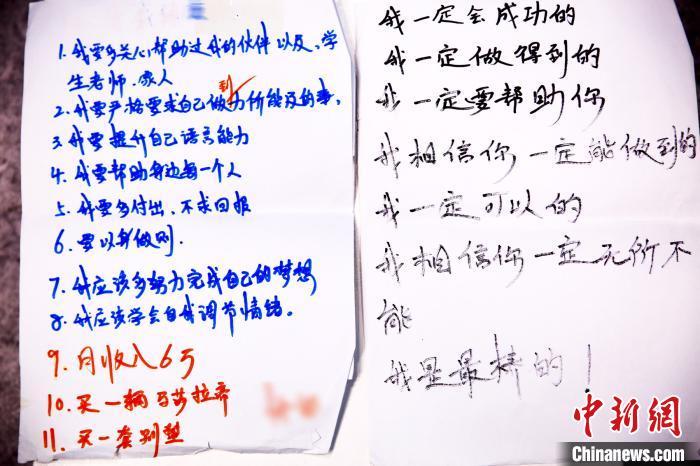 1. 我要多关心帮助过我的伙伴以及,学
生老师.家人
到
2. 我要严格要求自己做力所能及的事,
3. 我要提升自己语言能力
4. 我要帮助身边每一个人
5. 我要多付出,不求回报
6. 要以身做则.
7. 我应该多努力完成自己的梦想
8. 我应该学会自我调节情绪。
9. 月收入6万
10. 买一辆马莎拉蒂
11. 买一套别墅
我一定会成功的
我一定做得到的
我一定要帮助你
我相信你一定能做到的
我一定可以的
我相信你一定无所不
能
我是最棒的!
中新網
Chinanews.com